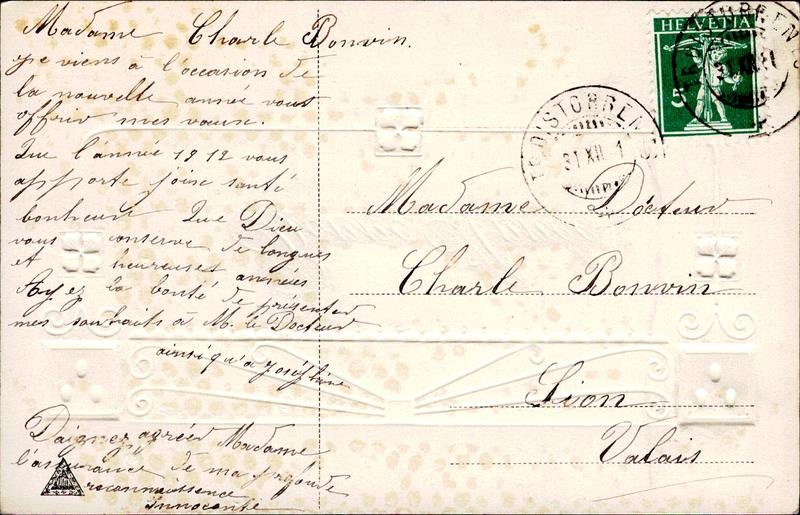 Madame Charle Bonvin.
je viens à l'occasion de
la nouvelle année vous
offrir mes vœux.
Que l'année 1912 vous
apporte joise santé
bonheur Que Dieu
vous conserve de longues
et heureuses années
Ayez la bonté de présenter
mes souhaits à M. le Docteur
ainsi qu'a Joséphine
Daignez agréer Madame
l'assurance de ma profonde
reconnaissance
Innocente
HELVETIA
5
TROISTORRENTS
31 XII 11
Madame Docteur
Charle Bonvin
Sion
Valais